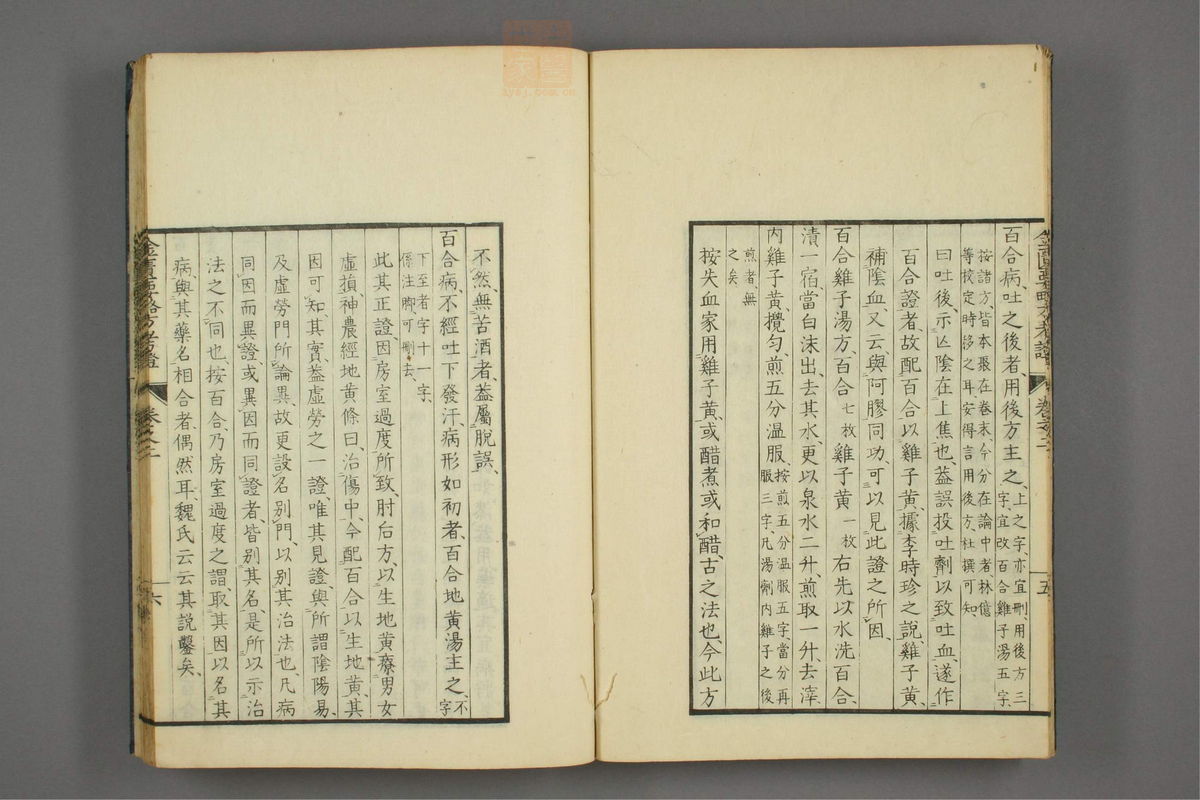 百合病、吐之後者、用後方主之、上之字、亦宜刪、用後方三字、宜改百合雞子湯五字、
按諸方、皆本聚在卷末、今分在論中者、林億等校定時移之耳、安得言用後方、杜撰可知、
曰吐後、示亡陰在上焦也、葢誤投吐劑以致吐血、遂作
百合證者、故配百合以雞子黃、據李時珍之說、雞子黃、
補陰血、又云與阿膠同功、可以見此證之所因、
百合雞子湯方、百合七枚雞子黃一枚右先以水洗百合、
漬一宿、當白沫出、去其水、更以泉水二升、煎取一升、去滓、
內雞子黃、攪勻、煎五分溫服、按煎五分溫服五字、當分再服三字、凡湯劑內雞子之後
煎者、無之矣
按失血家用雞子黃、或醋煮或和醋、古之法也、今此方
金匱要略方考證
卷之二
五
不然、無苦酒者、葢屬脫誤、
百合病、不經吐下發汗、病形如初者、百合地黃湯主之、不字
下至者字十一字、係注脚、可刪去、
此其正證、因房室過度所致、肘后方、以生地黃療男女
虛損、神農經地黃條曰、治傷中、今配百合以生地黃、其
因可知、其實葢虛勞之一證、唯其見證、與所謂陰陽易、
及虛勞門所論異、故更設名別門、以別其治法也、凡病
同因而異證、或異因而同證者、皆別其名、是所以示治
法之不同也、按百合、乃房室過度之謂、取其因以名其
病、與其藥名相合者、偶然耳、魏氏云云、其說鑿矣、
金匱要略方考證
卷之二
六